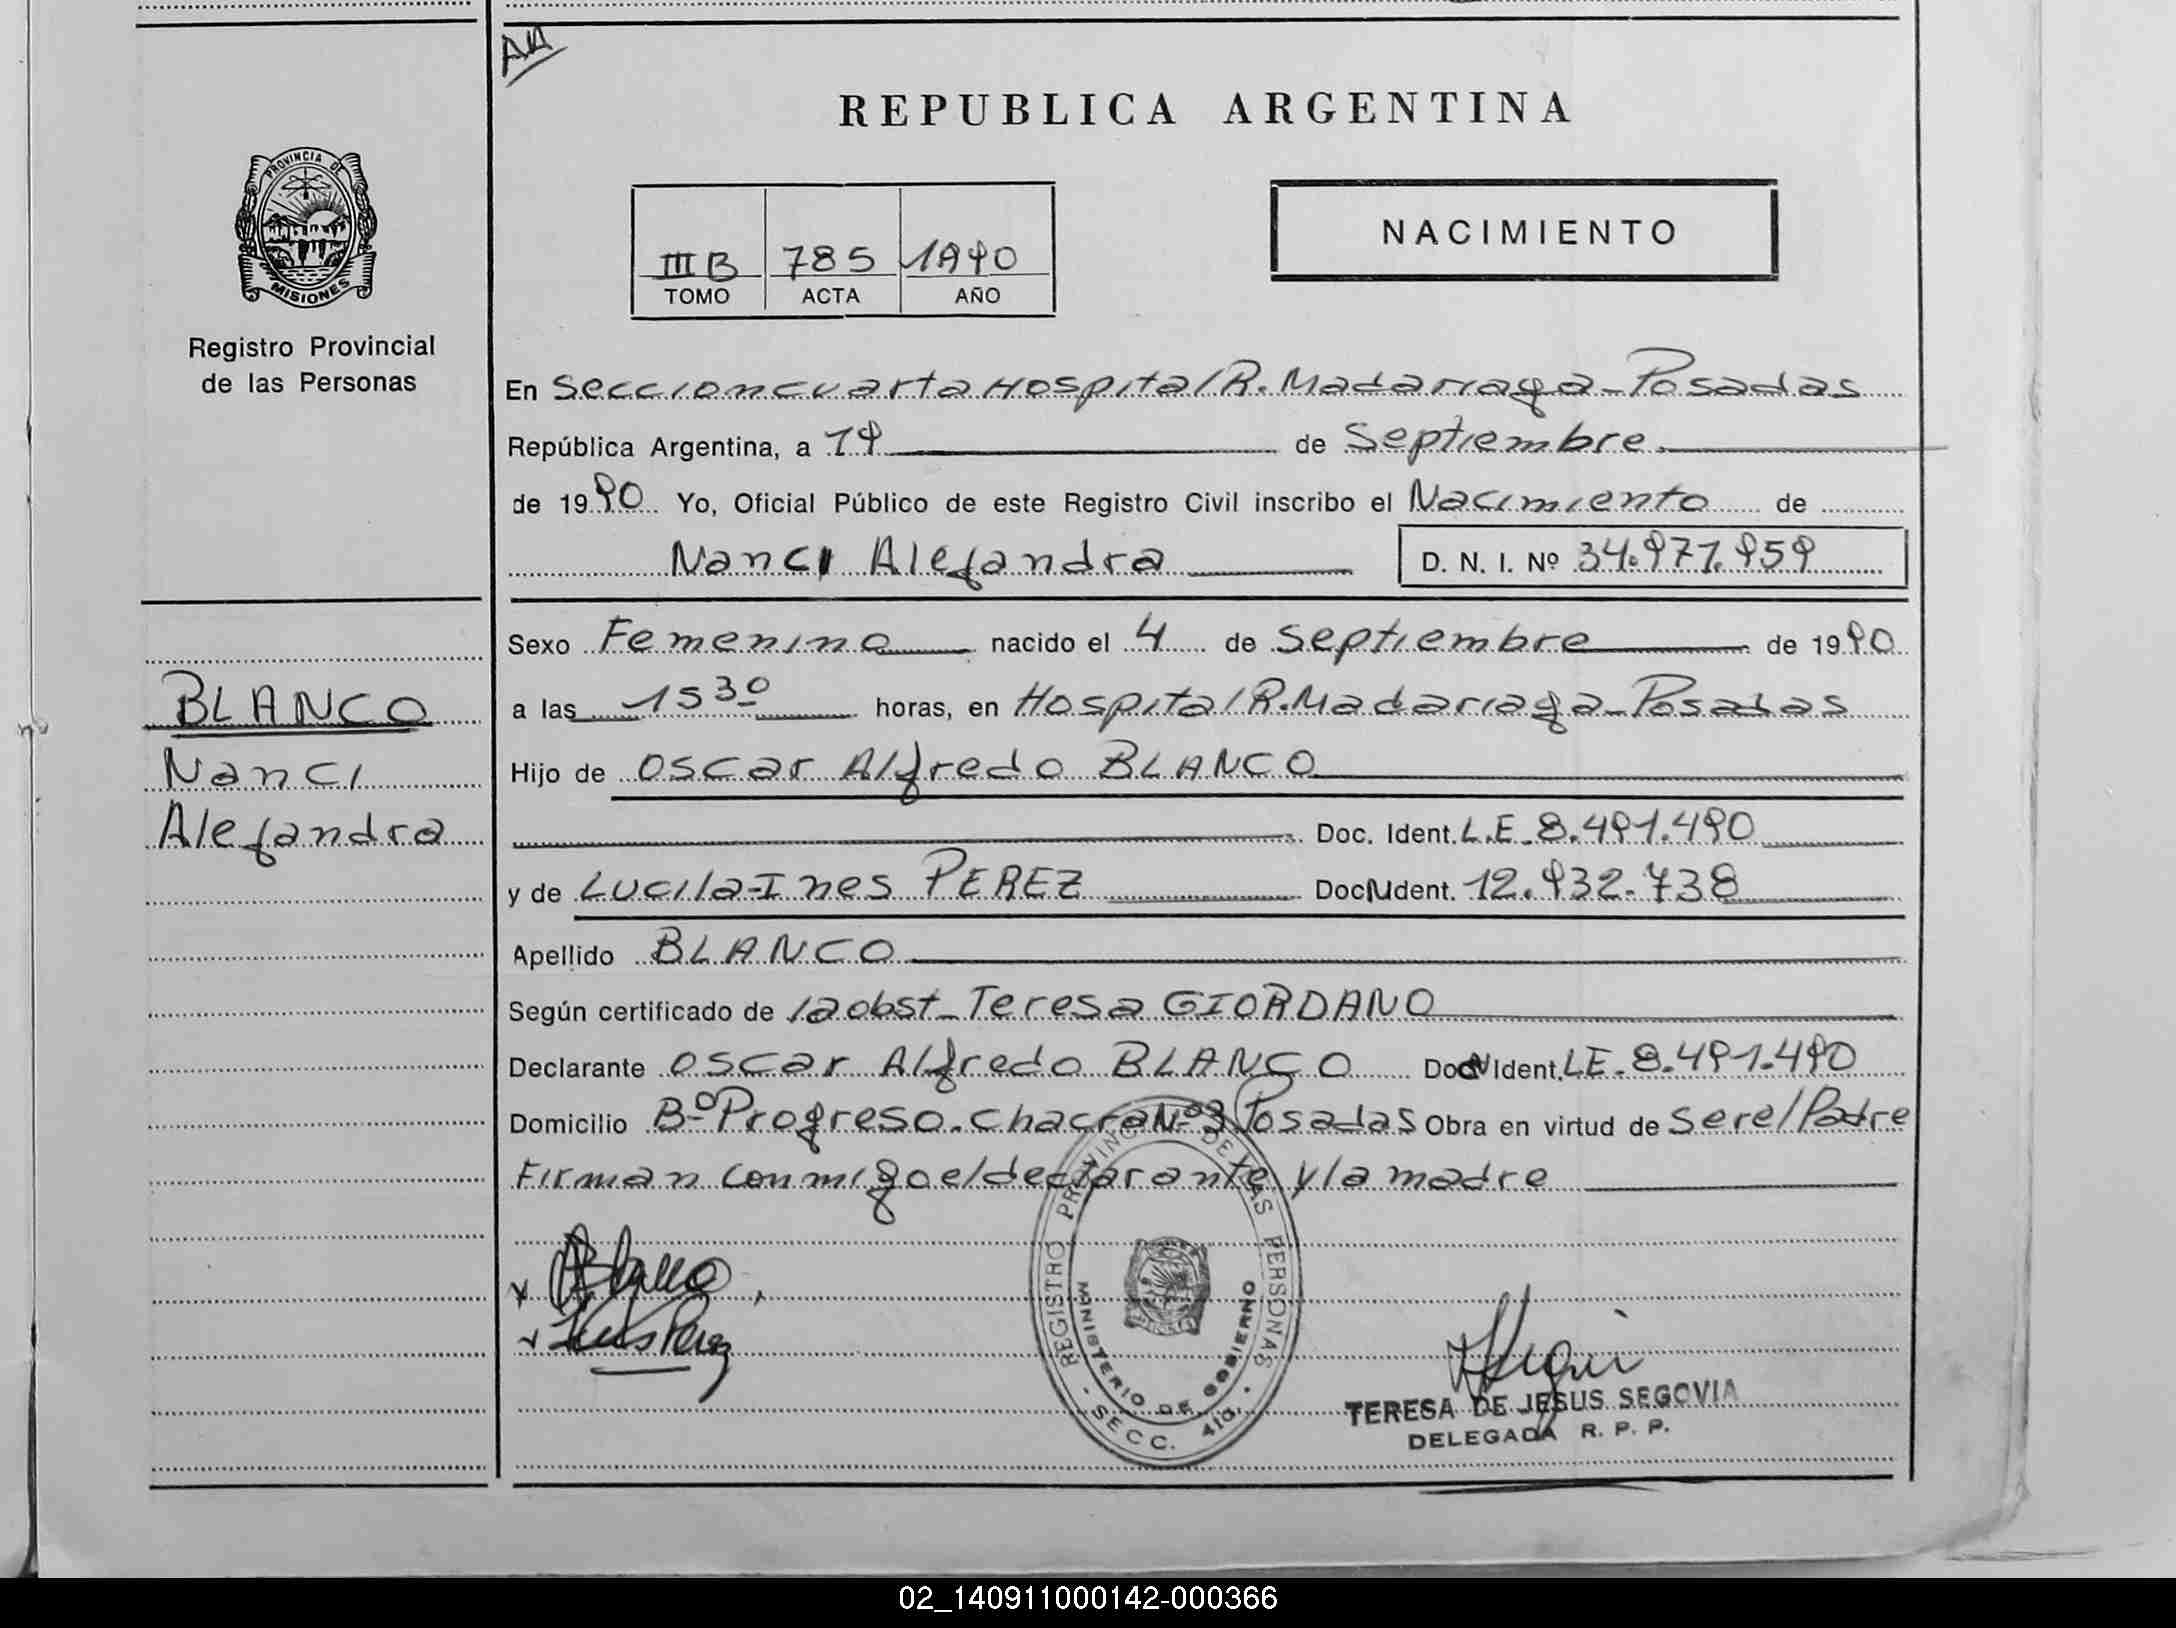 AA
REPUBLICA ARGENTINA
PROVINCIA DE MISIONES
Registro Provincial
de las Personas
NACIMIENTO
III B 785 1990
TOMO ACTA AÑO
En Seccion cuarta Hospital R. Madariaga - Posadas
República Argentina, a 19 de Septiembre
de 1990 Yo, Oficial Público de este Registro Civil inscribo el Nacimiento de
Nanci Alejandra D. N. I. Nº 34.971.959
Sexo Femenino nacido el 4 de Septiembre de 1990
a las 15 30 horas, en Hospital R. Madariaga - Posadas
Hijo de Oscar Alfredo BLANCO
Doc. Ident. L.E. 8.491.490
y de Lucila Ines PEREZ Doc. Ident. 12.932.738
Apellido BLANCO
Según certificado de la obst - Teresa GIORDANO
Declarante Oscar Alfredo BLANCO Doc. Ident. LE. 8.491.490
Domicilio Bº Progreso. Chacra Nº 3 Posadas Obra en virtud de ser el Padre
Firman conmigo el declarante y la madre
BLANCO
Nanci
Alejandra
Blanco
Perez
REGISTRO PROVINCIAL DE LAS PERSONAS
MINISTERIO DE GOBIERNO
SECC. 4ta.
TERESA DE JESUS SEGOVIA
DELEGADA R. P. P.
02_140911000142-000366